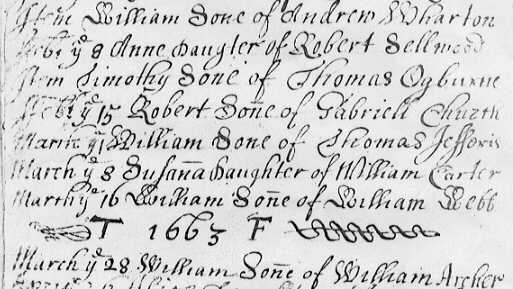 Item William Sone of Andrew Wharton
Feb: yᵉ 8 Anne Daugter of Robert Sellwood
Item Timothy Sone of Thomas Ogburne
Feb: yᵉ 15 Robert Soñe of Gabriell Church
March yᵉ William Sone of Thomas Jefferis
March yᵉ 8 Susaña Daughter of William Carter
March yᵉ 16 William Soñe of William Webb
T 1663 F
March yᵉ 28 William Soñe of William Archer